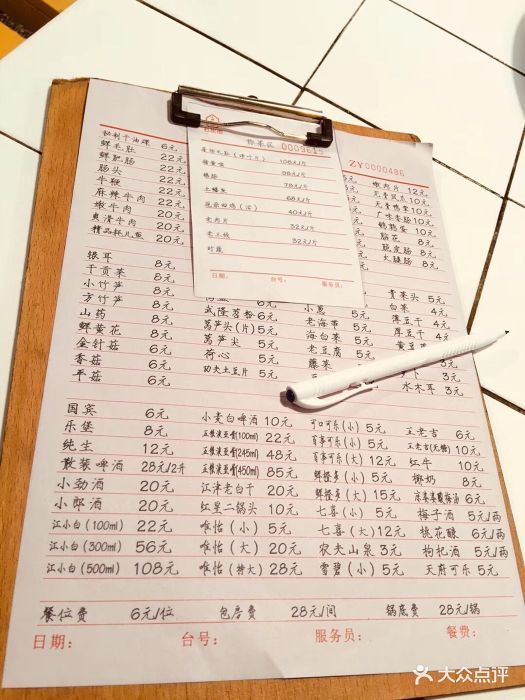 称菜区 0009615
ZY0000486
108元/斤
98元/斤
78元/斤
68元/斤
40元/斤
老肉片 32元/斤
老豆钱 32元/斤
时蔬
日期： 台号： 服务员：
秘制干油碟 6元
鲜毛肚 22元
鲜肥肠 22元
肠头 22元
牛鞭 22元
麻辣牛肉 22元
嫩牛肉 20元
爽滑牛肉 20元
精品耗儿鱼 20元
嫩肉片 12元
广味香肠 10元
鹌鹑蛋 10元
脑花 8元
脆皮肠 8元
火腿肠 8元
银耳 8元
干贡菜 8元
小竹笋 8元
方竹笋 8元
山药 8元
鲜黄花 8元
金针菇 6元
香菇 6元
平菇 6元
武隆苕粉 6元
莴笋头(片) 5元
莴笋尖 5元
荷心 5元
功夫土豆片 5元
小葱
老海带
海白菜 5元
老豆腐
藤菜
青菜头 5元
白菜 4元
薄豆干 4元
厚豆干
黄豆芽
3元
水木耳 3元
国宾 6元 小麦白啤酒 10元 可口可乐(小) 5元 王老吉 6元
乐堡 8元 五粮浓豆酱(100ml) 22元 百事可乐(小) 5元 王老吉(无糖) 10元
纯生 12元 (245ml) 48元 百事可乐(大) 12元 红牛 10元
散装啤酒 28元/2升 (450ml) 85元 鲜橙多(小) 5元 椰奶 8元
小劲酒 20元 江津老白干 20元 鲜橙多(大) 15元 酸梅汤 6元
小郎酒 20元 红星二锅头 10元 七喜(小) 5元 梅子酒 5元/两
江小白(100ml) 22元 唯怡(小) 5元 七喜(大) 12元 桃花酿 6元/两
江小白(300ml) 56元 唯怡(大) 20元 农夫山泉 3元 枸杞酒 5元/两
江小白(500ml) 108元 唯怡(特大) 28元 雪碧(小) 5元 天府可乐 5元
餐位费 6元/位 包房费 28元/间 锅底费 28元/锅
日期： 台号： 服务员： 餐费：
大众点评